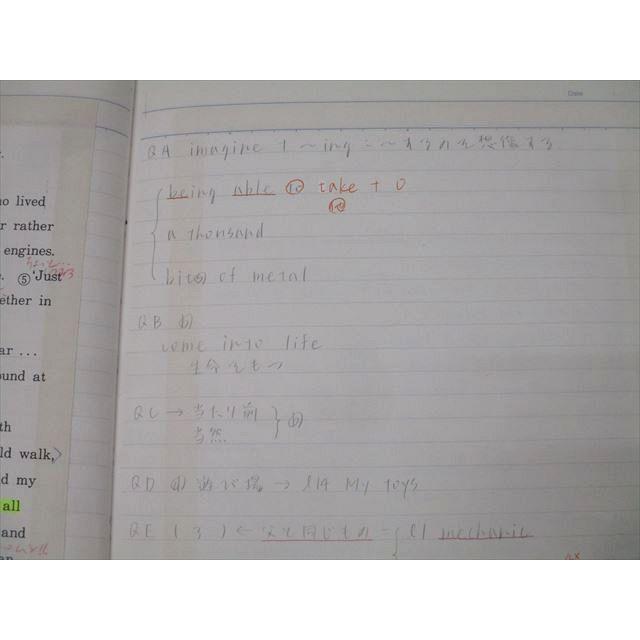 no lived
r rather
engines.
⑤'Just
ether in
ar ...
ound at
th
ld walk,
d my
all
and
Date
QA imagine + ~ing = ~するのを想像する
being able to take + O
a thousand
bits of metal
QB
come into life
生命をもつ
QC → 当たり前
当然
QD → l14 My toys
QE (3) ← 父と同じもの = l1 mechanic